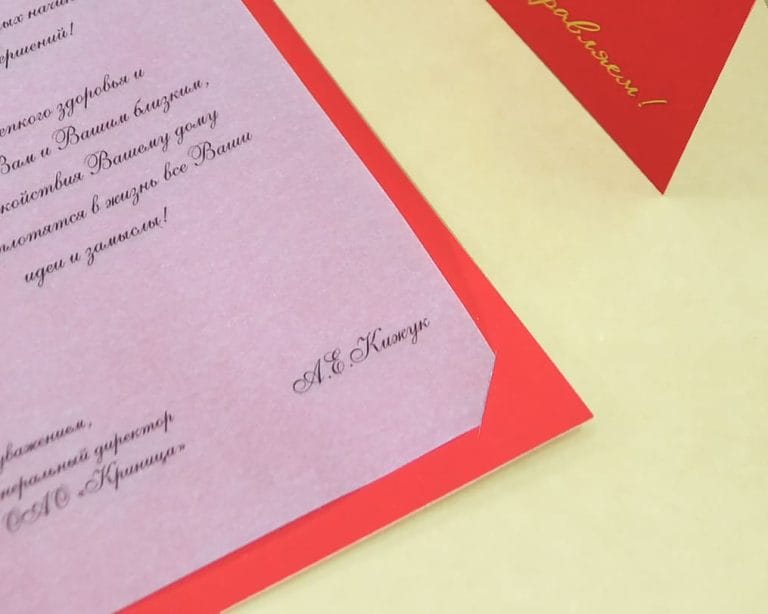 ых начин
ершений!
епкого здоровья и
Вам и Вашим близким,
койствия Вашему дому
плотятся в жизнь все Ваши
идеи и замыслы!
А.Е.Кижук
уважением,
неральный директор
ОАО «Криница»
равляем!